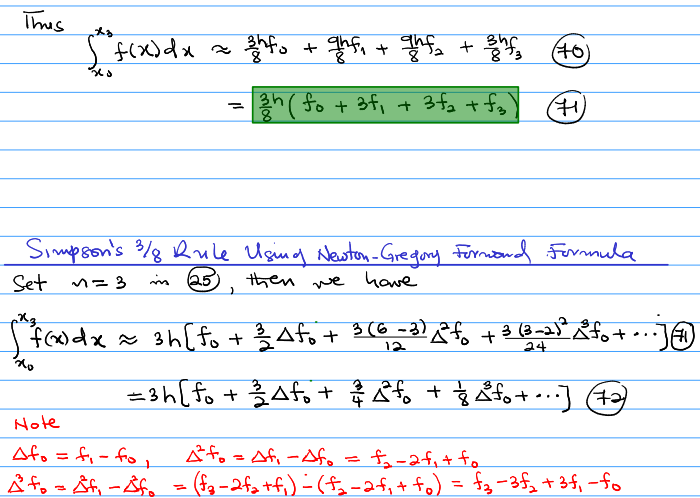 Thus
∫_{x₀}^{x₃} f(x)dx ≈ 3h/8 f₀ + 9h/8 f₁ + 9h/8 f₂ + 3h/8 f₃ (70)
= 3h/8 ( f₀ + 3f₁ + 3f₂ + f₃ ) (71)
Simpson's 3/8 Rule Using Newton-Gregory Forward Formula
Set n = 3 in (25), then we have
∫_{x₀}^{x₃} f(x)dx ≈ 3h[ f₀ + 3/2 Δf₀ + 3(6-3)/12 Δ²f₀ + 3(3-2)²/24 Δ³f₀ + ⋯ ] (71)
= 3h[ f₀ + 3/2 Δf₀ + 3/4 Δ²f₀ + 1/8 Δ³f₀ + ⋯ ] (72)
Note
Δf₀ = f₁ - f₀, Δ²f₀ = Δf₁ - Δf₀ = f₂ - 2f₁ + f₀
Δ³f₀ = Δ²f₁ - Δ²f₀ = (f₃ - 2f₂ + f₁) - (f₂ - 2f₁ + f₀) = f₃ - 3f₂ + 3f₁ - f₀